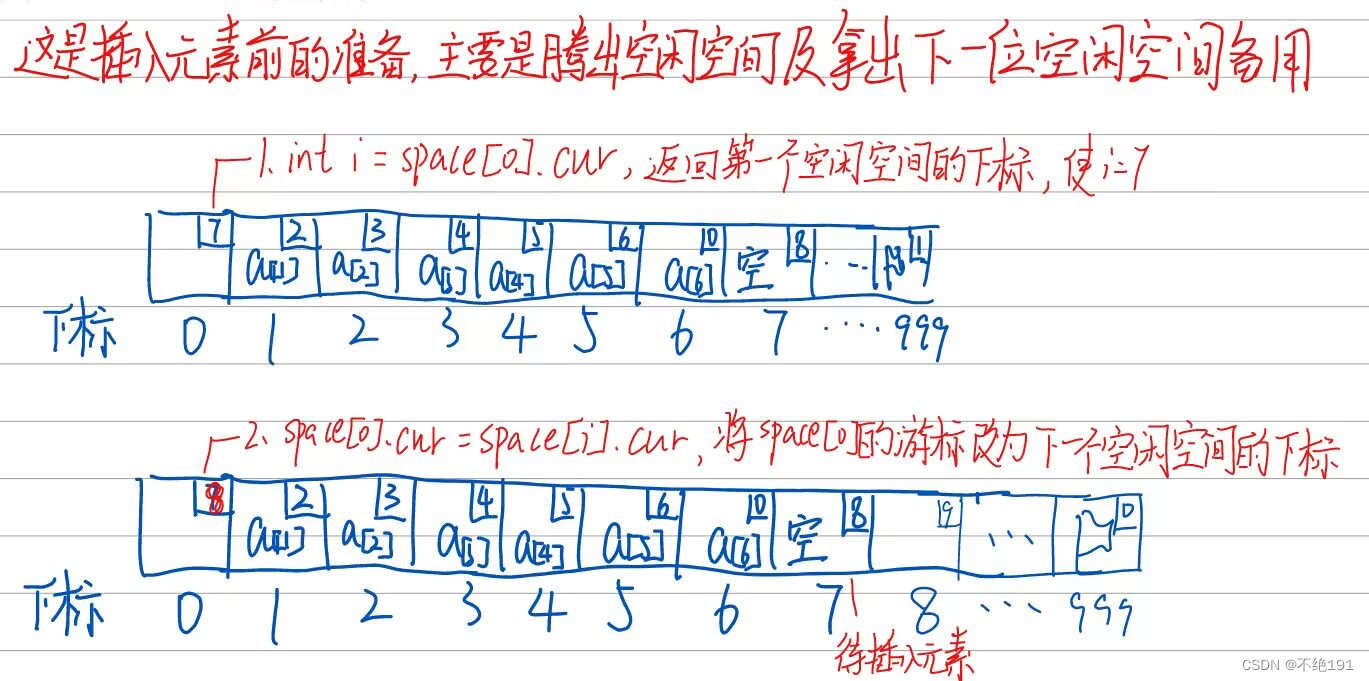 这是插入元素前的准备,主要是腾出空闲空间及拿出下一位空闲空间备用
1. int i = space[0].cur, 返回第一个空闲空间的下标, 使i=7
7 2 3 4 5 6 0 8 1
a[1] a[2] a[3] a[4] a[5] a[6] 空 ...
下标 0 1 2 3 4 5 6 7 .... 999
2. space[0].cur = space[i].cur, 将space[0]的游标改为下一个空闲空间的下标
8 2 3 4 5 6 0 8 9 0
a[1] a[2] a[3] a[4] a[5] a[6] 空 ...
下标 0 1 2 3 4 5 6 7 8 ... 999
待插入元素
CSDN @不绝191